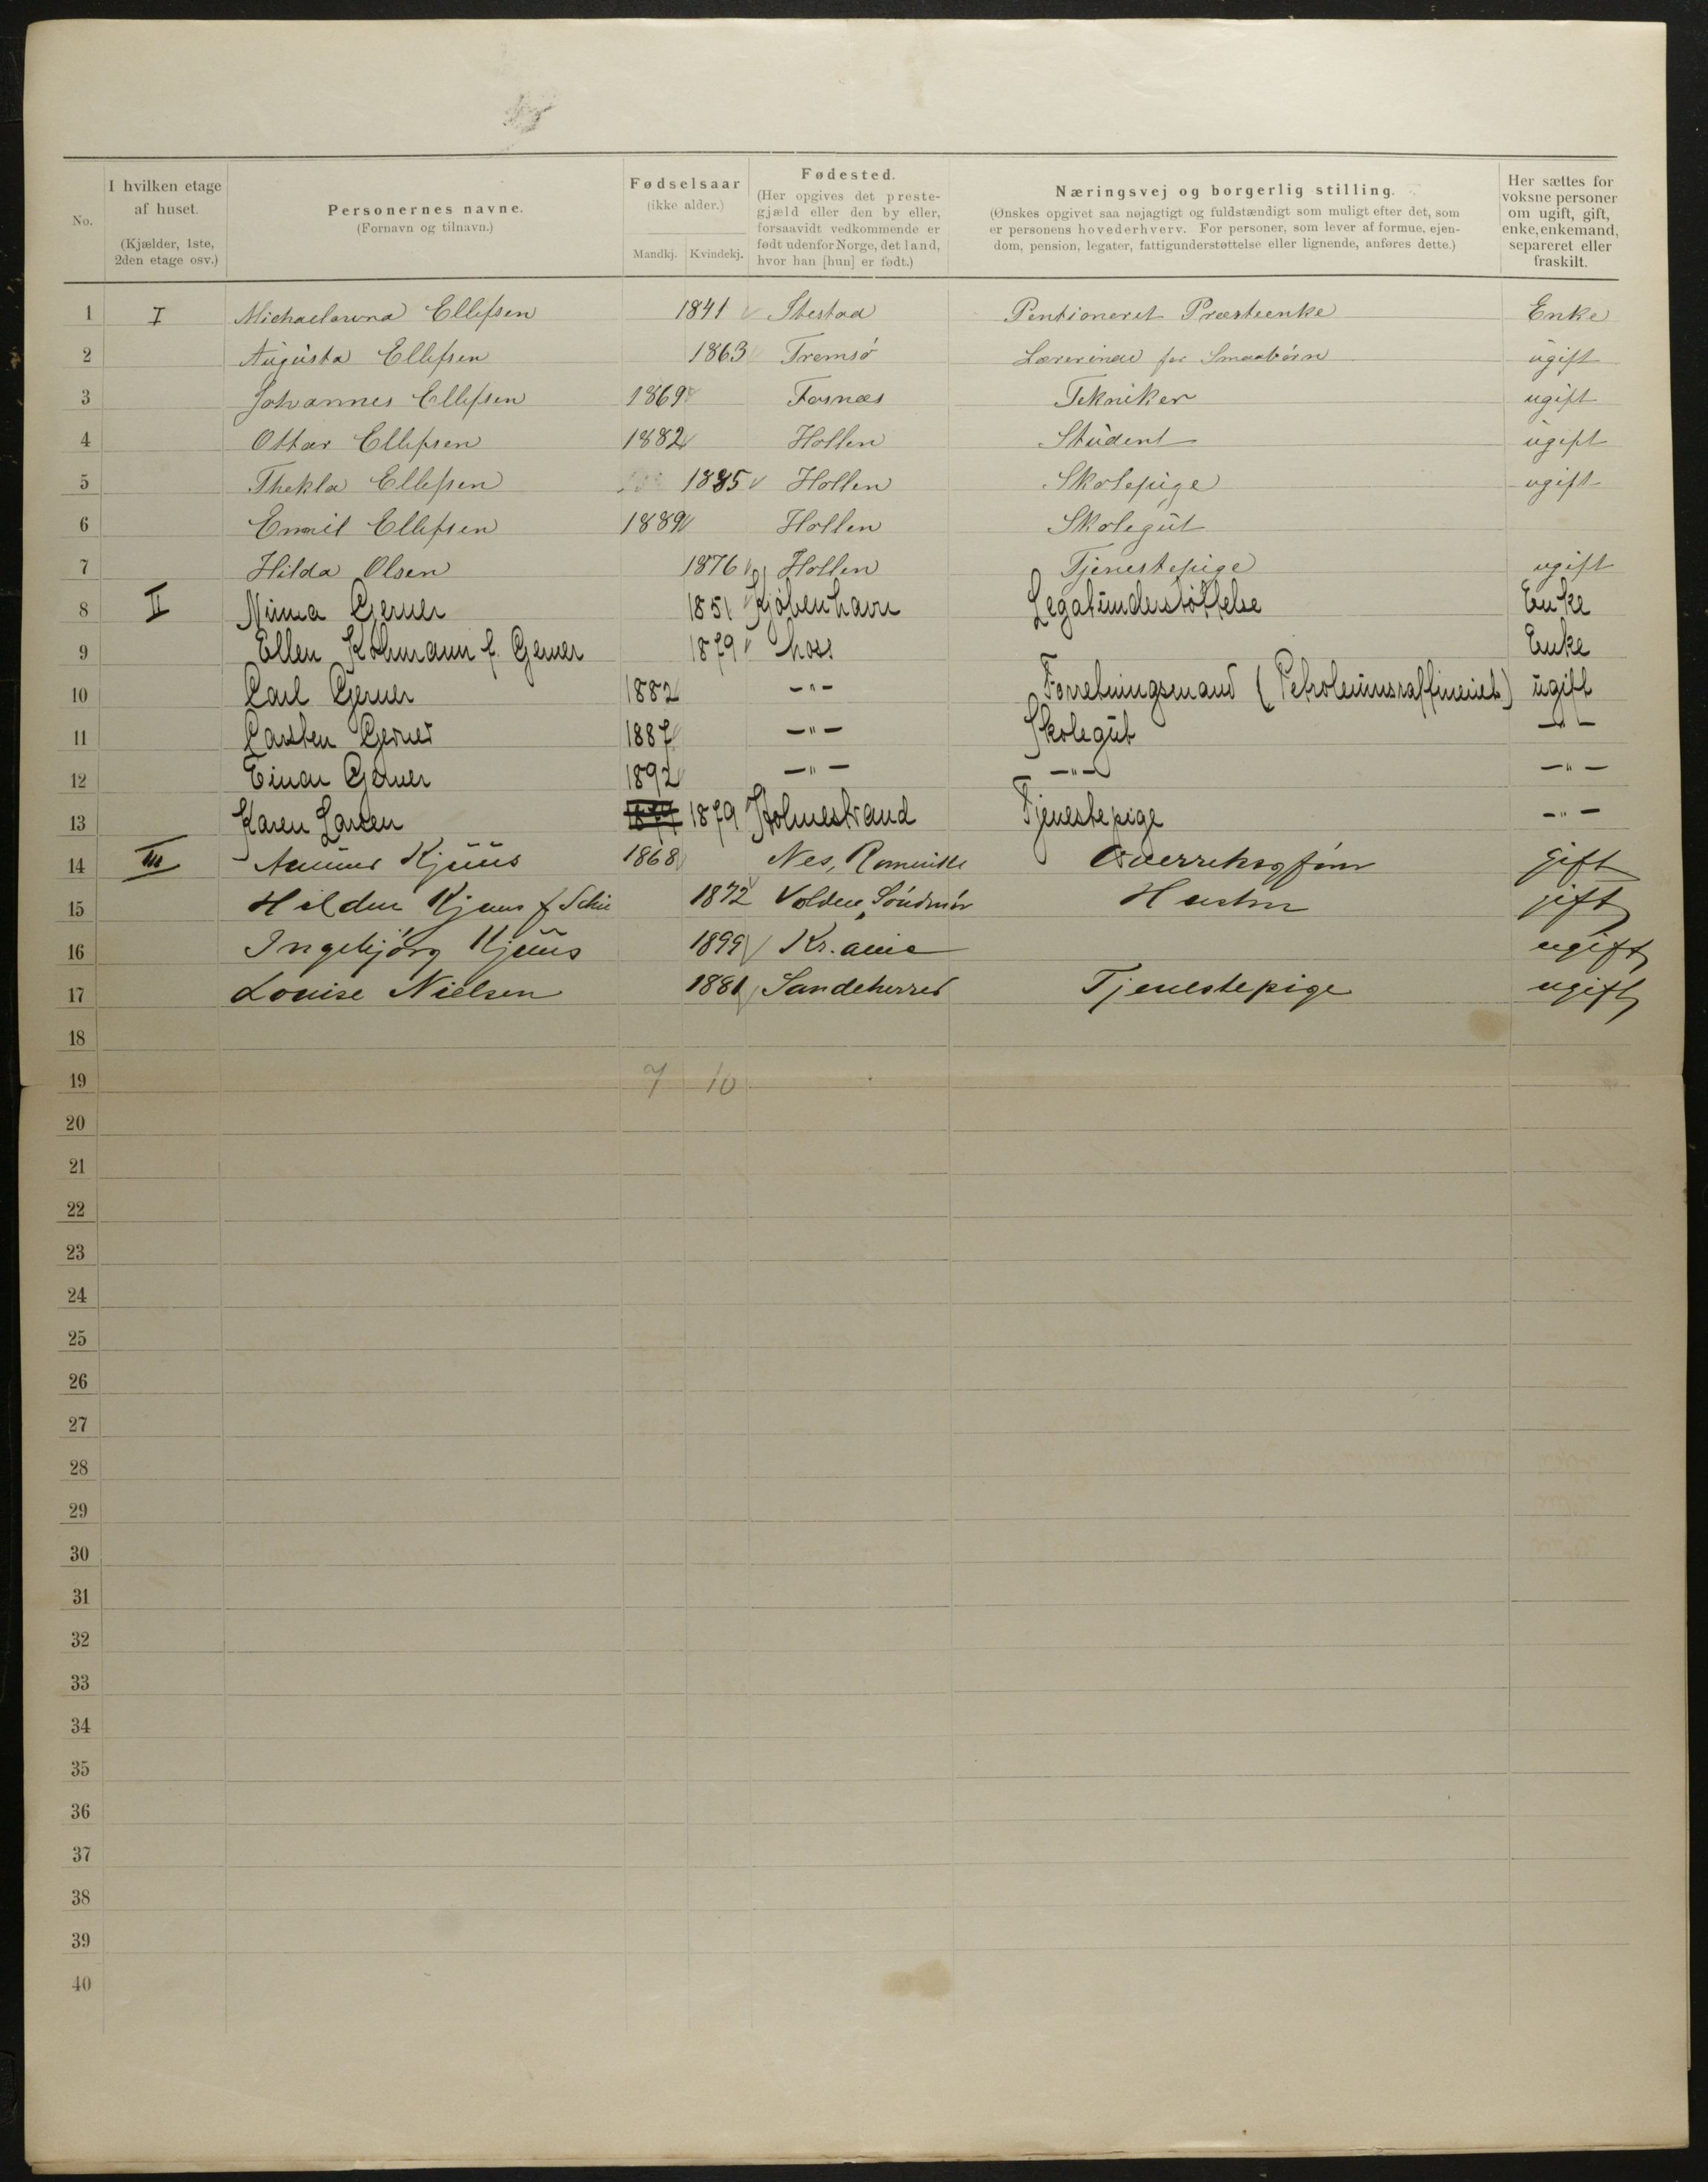 No.
I hvilken etage af huset.
(Kjælder, 1ste, 2den etage osv.)
Personernes navne.
(Fornavn og tilnavn.)
Fødselsaar
(ikke alder.)
Mandkj. Kvindekj.
Fødested.
(Her opgives det prestegjæld eller den by eller, forsaavidt vedkommende er født udenfor Norge, det land, hvor han [hun] er født.)
Næringsvej og borgerlig stilling.
(Ønskes opgivet saa nøjagtigt og fuldstændigt som muligt efter det, som er personens hovederhverv. For personer, som lever af formue, ejendom, pension, legater, fattigunderstøttelse eller lignende, anføres dette.)
Her sættes for voksne personer om ugift, gift, enke, enkemand, separeret eller fraskilt.
1 I Ellefsen 1841 Pentioneret Præsteenke Enke
2 Augusta Ellefsen 1863 Tromsø Lærerinde for Smaabørn ugift
3 Johannes Ellefsen 1869 Fosnæs Tekniker ugift
4 Ottar Ellefsen 1882 Hollen Student ugift
5 Thekla Ellefsen 1885 Hollen Skolepige ugift
6 Emil Ellefsen 1889 Hollen Skolegut
7 Hilda Olsen 1876 Hollen Tjenestepige ugift
8 II Gerner 1851 Kjøbenhavn Legatunderstøttelse Enke
9 Ellen f. Gerner 1879 Moss Enke
10 Carl Gerner 1882 —"— Forretningsmand (Petroleumsraffineriet) ugift
11 Carsten Gerner 1887 —"— Skolegut —"—
12 Einar Gerner 1892 —"— —"— —"—
13 Karen Larsen 1879 Holmestrand Tjenestepige —"—
14 III Kjuus 1868 Nes, Romerike gift
15 Kjuus f 1872 Volden, Søndmør Hustru gift
16 Ingebjørg Kjuus 1899 Kr.ania ugift
17 Louise Nielsen 1881 Sandeherred Tjenestepige ugift
18
19 7 10
20
21
22
23
24
25
26
27
28
29
30
31
32
33
34
35
36
37
38
39
40